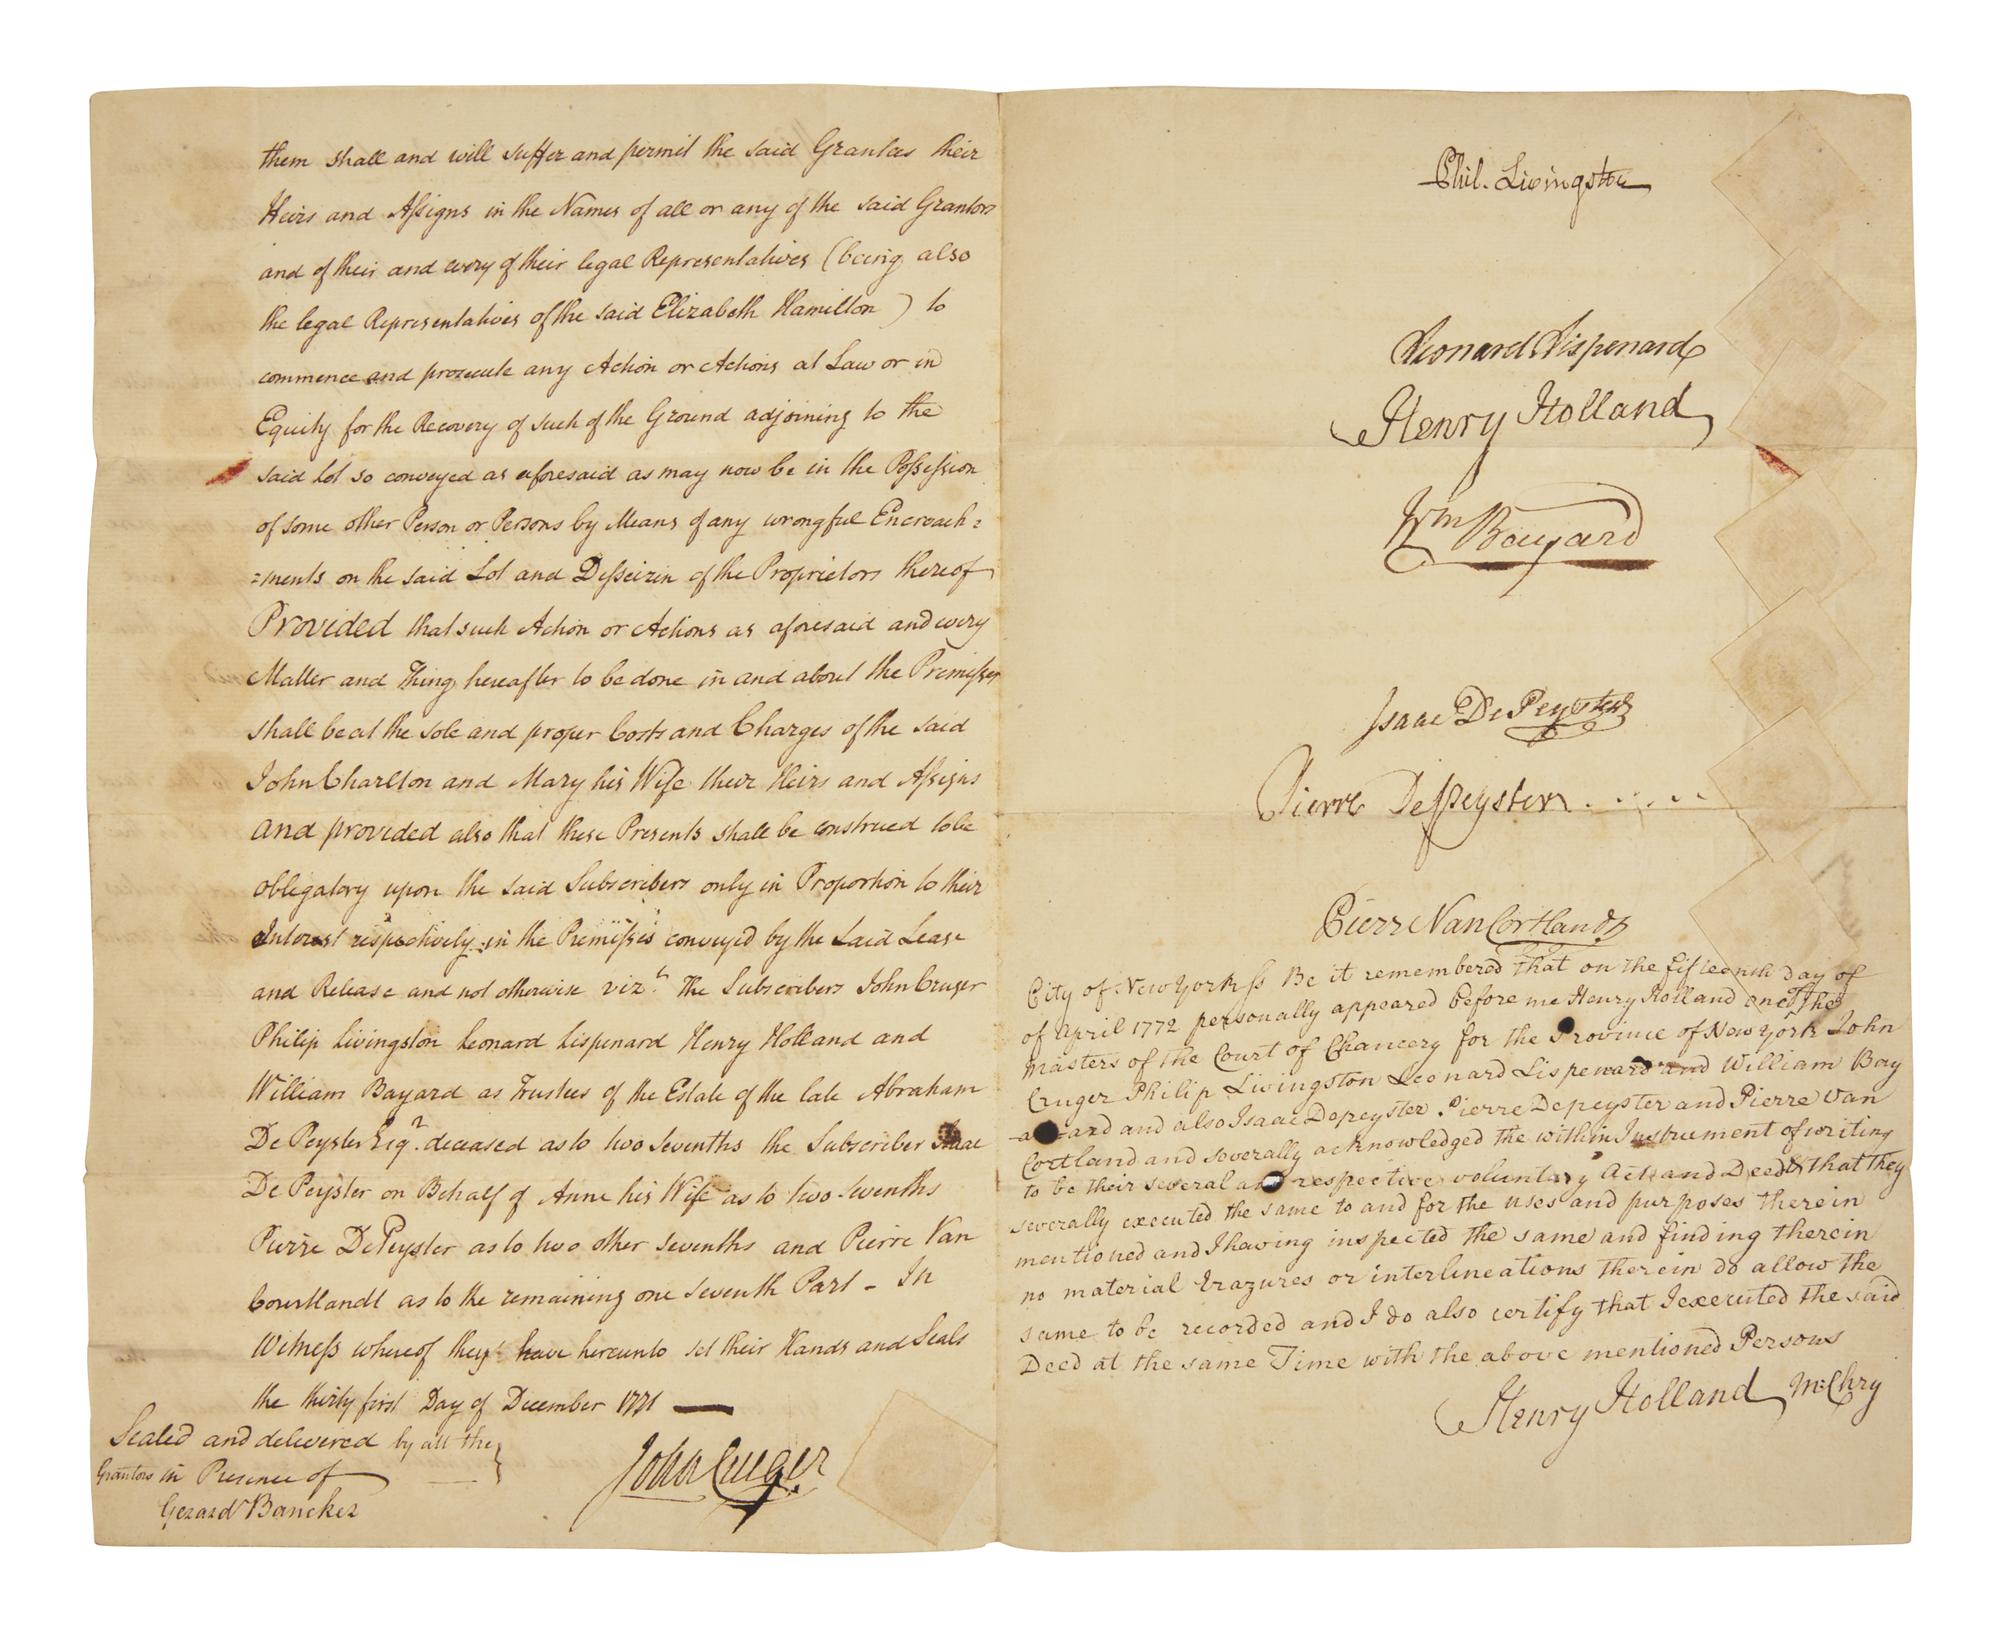 them shall and will suffer and permit the said Grantees their
Heirs and Assigns in the Names of all or any of the said Grantors
and of their and every of their legal Representatives (being also
the legal Representatives of the said Elizabeth Hamilton) to
commence and prosecute any Action or Actions at Law or in
Equity for the Recovery of such of the Ground adjoining to the
said Lot so conveyed as aforesaid as may now be in the Possession
of some other Person or Persons by Means of any wrongful Encroach=
=ments on the said Lot and Disseizin of the Proprietors thereof
Provided that such Action or Actions as aforesaid and every
Matter and Thing hereafter to be done in and about the Premisses
shall be at the sole and proper Costs and Charges of the said
John Charlton and Mary his Wife their Heirs and Assigns
and provided also that these Presents shall be construed to be
obligatory upon the said Subscribers only in Proportion to their
Interest respectively in the Premisses conveyed by the said Lease
and Release and not otherwise vizt. The Subscribers John Cruger
Philip Livingston Leonard Lispenard Henry Holland and
William Bayard as Trustees of the Estate of the late Abraham
De Peyster Esqr. deceased as to two sevenths the Subscriber Isaac
De Peyster on Behalf of Anne his Wife as to two sevenths
Pierre De Peyster as to two other sevenths and Pierre Van
Courtlandt as to the remaining one seventh Part - In
Witness whereof they have hereunto set their Hands and Seals
the thirty first Day of December 1771
Sealed and delivered by all the
Grantors in Presence of
Gerard Bancker
John Cruger
Phil. Livingston
Leonard Lispenard
Henry Holland
Wm Bayard
Isaac De Peyster
Pierre DePeyster
Pierre Van Cortlandt
City of New York ss Be it remembered that on the fifteenth day of
of April 1772 personally appeared before me Henry Holland one of the
Masters of the Court of Chancery for the Province of New York John
Cruger Philip Livingston Leonard Lispenard and William Bay
ard and also Isaac Depeyster Pierre Depeyster and Pierre Van
Cortland and severally acknowledged the within Instrument of writing
to be their several and respective voluntary Acts and Deeds that they
severally executed the same to and for the uses and purposes therein
mentioned and I having inspected the same and finding therein
no material Erazures or interlineations therein do allow the
same to be recorded and I do also certify that I executed the said
Deed at the same Time with the above mentioned Persons
Henry Holland Mr Chry